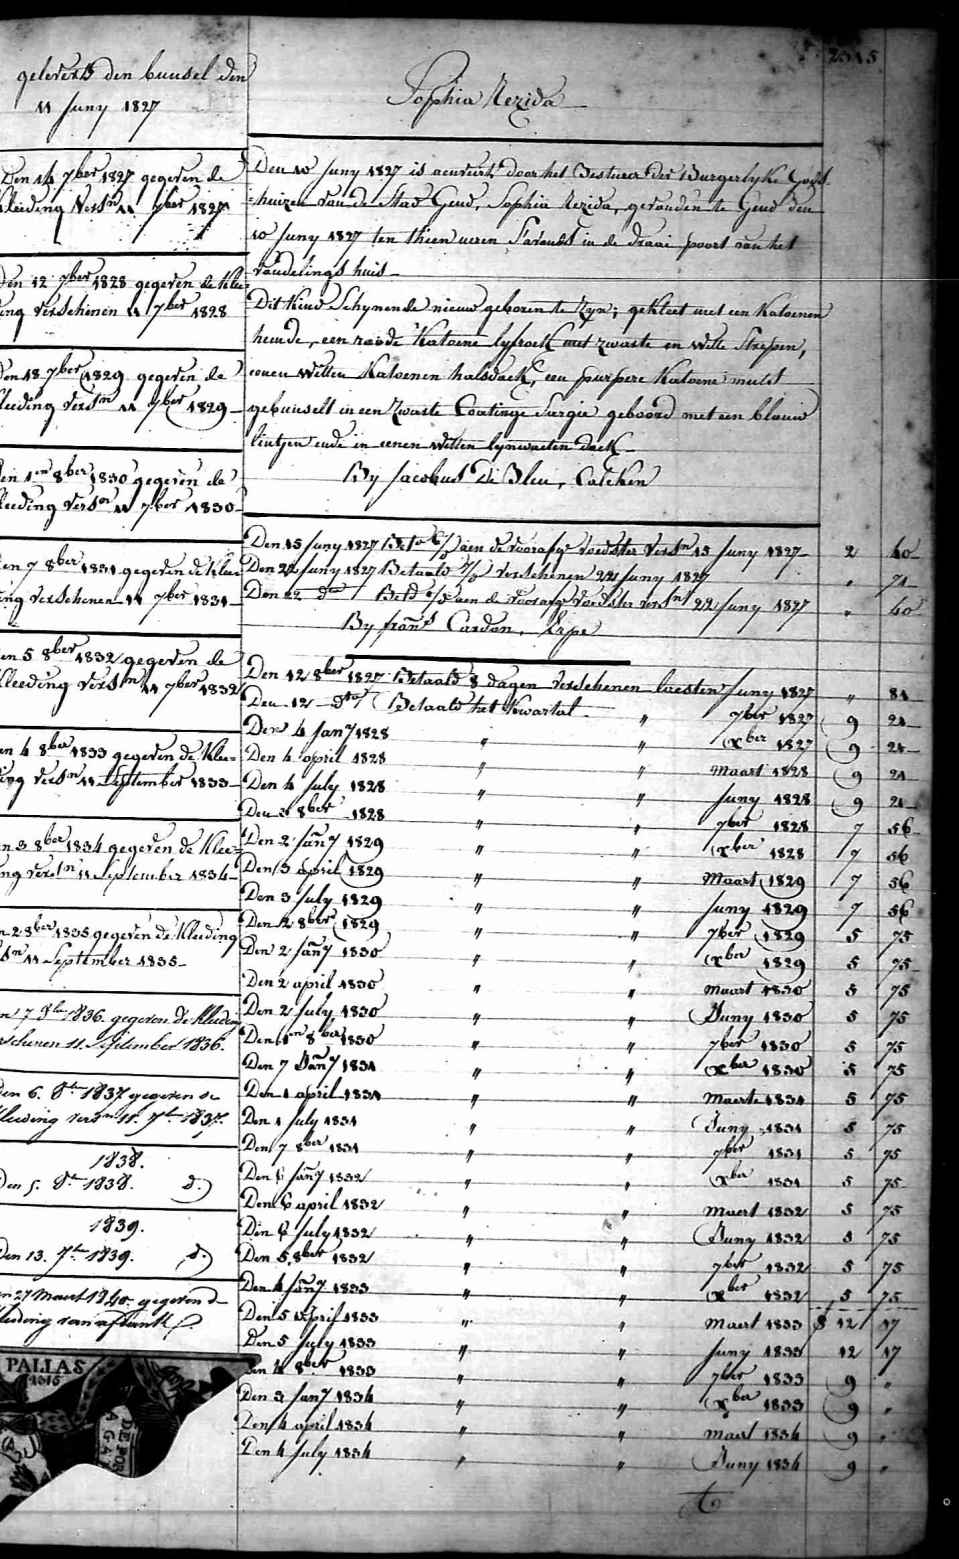 2315
geleverd den bunsel den
11 Juny 1827
Sophia Nezida
Den 14 7ber 1827 gegeven de
kleeding versn 11 7ber 1827
Den 12 7ber 1828 gegeven de klee-
ding verschenen 11 7ber 1828
Den 18 7ber 1829 gegeven de
kleeding versn 11 7ber 1829
Den 1en 8ber 1830 gegeven de
kleeding versn 11 7ber 1830
en 7 8ber 1831 gegeven de klee
ing verschenen 11 7ber 1831
en 5 8ber 1832 gegeven de
kleeding versn 11 7ber 1832
en 4 8ber 1833 gegeven de klee=
ding versn 11 September 1833
n 3 8ber 1834 gegeven de klee=
ng versn 11 September 1834
n 2 8ber 1835 gegeven de kleeding
sn 11 September 1835
n 7 8br 1836 gegeven de kleeding
schenen 11 September 1836.
Den 6. 8br 1837 gegeven de
kleeding versn 11. 7br 1837.
1838.
Den 5. 8br 1838. d.)
1839.
Den 13. 7br 1839. d.)
n 27 Maart 1840 gegeven d
kleeding van
PALLAS
1815
Den 10 Juny 1827 is aenveerd door het Bestuer der Burgerlyke Godt
=huizen van de Stad Gend, Sophia Nezida, gevonden te Gend den
10 Juny 1827 ten thien ueren s'avonds in de draai poort van het
vondelings huis
Dit kind Schynende nieuw geboren te zyn; gekleet met een katoenen
hemde, een roode katoene lyfrock met zwarte en witte Strepen,
eenen witten katoenen halsdoek, een purpere katoene muts
gebunselt in een zwarte Coatinge Sargie geboord met een blauw
lintjen ende in eenen witten lynwaeten doek
By Jacobus De Bleu, Calcken
Den 15 Juny 1827 aen de voorafge voedster versn 15 Juny 1827 2 40
Den 22 Juny 1827 Betaald verschenen 22 Juny 1827 " 71
Den 22 do Betd aen de voorafge voedster versn 22 Juny 1827 " 40
By frans Cardon, Erpe
Den 12 8ber 1827 Betaald 8 dagen verschenen laesten Juny 1827 " 81
Den 12 dto Betaald het kwartal " 7ber 1827 9 21
Den 4 Jany 1828 " " Xber 1827 9 21
Den 4 april 1828 " " Maart 1828 9 21
Den 4 July 1828 " " Juny 1828 9 21
Den 3 8ber 1828 " " 7ber 1828 7 56
Den 2 Jany 1829 " " Xber 1828 7 56
Den 3 april 1829 " " Maart 1829 7 56
Den 3 July 1829 " " Juny 1829 7 56
Den 2 8ber 1829 " " 7ber 1829 5 75
Den 2 Jany 1830 " " Xber 1829 5 75
Den 2 april 1830 " " Maart 1830 5 75
Den 2 July 1830 " " Juny 1830 5 75
Den 1en 8ber 1830 " " 7ber 1830 5 75
Den 7 Jany 1831 " " Xber 1830 5 75
Den 1 april 1831 " " Maerte 1831 5 75
Den 1 July 1831 " " Juny 1831 5 75
Den 7 8ber 1831 " " 7ber 1831 5 75
Den 6 Jany 1832 " " Xber 1831 5 75
Den 6 april 1832 " " Maert 1832 5 75
Den 6 July 1832 " " Juny 1832 5 75
Den 5 8ber 1832 " " 7ber 1832 5 75
Den 4 Jany 1833 " " Xber 1832 5 75
Den 5 April 1833 " " Maert 1833 12 17
Den 5 July 1833 " " Juny 1833 12 17
en 4 8ber 1833 " " 7ber 1833 9 "
Den 3 Jany 1834 " " Xber 1833 9 "
Den 4 april 1834 " " Maert 1834 9 "
Den 4 July 1834 " " Juny 1834 9 "